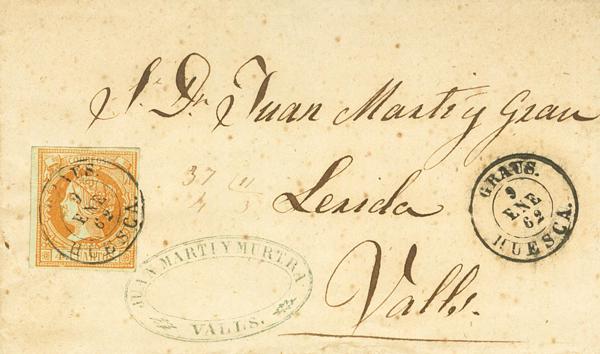 Sr Dn Juan Marti y Grau
Lerida
Valls.
GRAUS.
9
ENE
62
HUESCA.
GRAUS.
9
ENE
62
HUESCA.
JUAN MARTI Y MURTRA
VALLS.
37